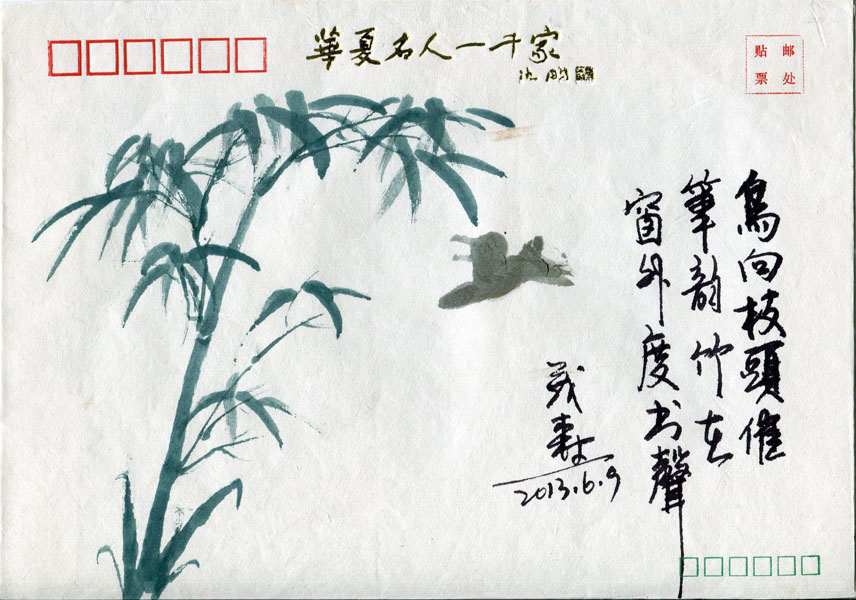 華夏名人一千家
沈鹏
贴 邮
票 处
鳥向枝頭催
筆韵竹在
窗外度书聲
2013.6.9